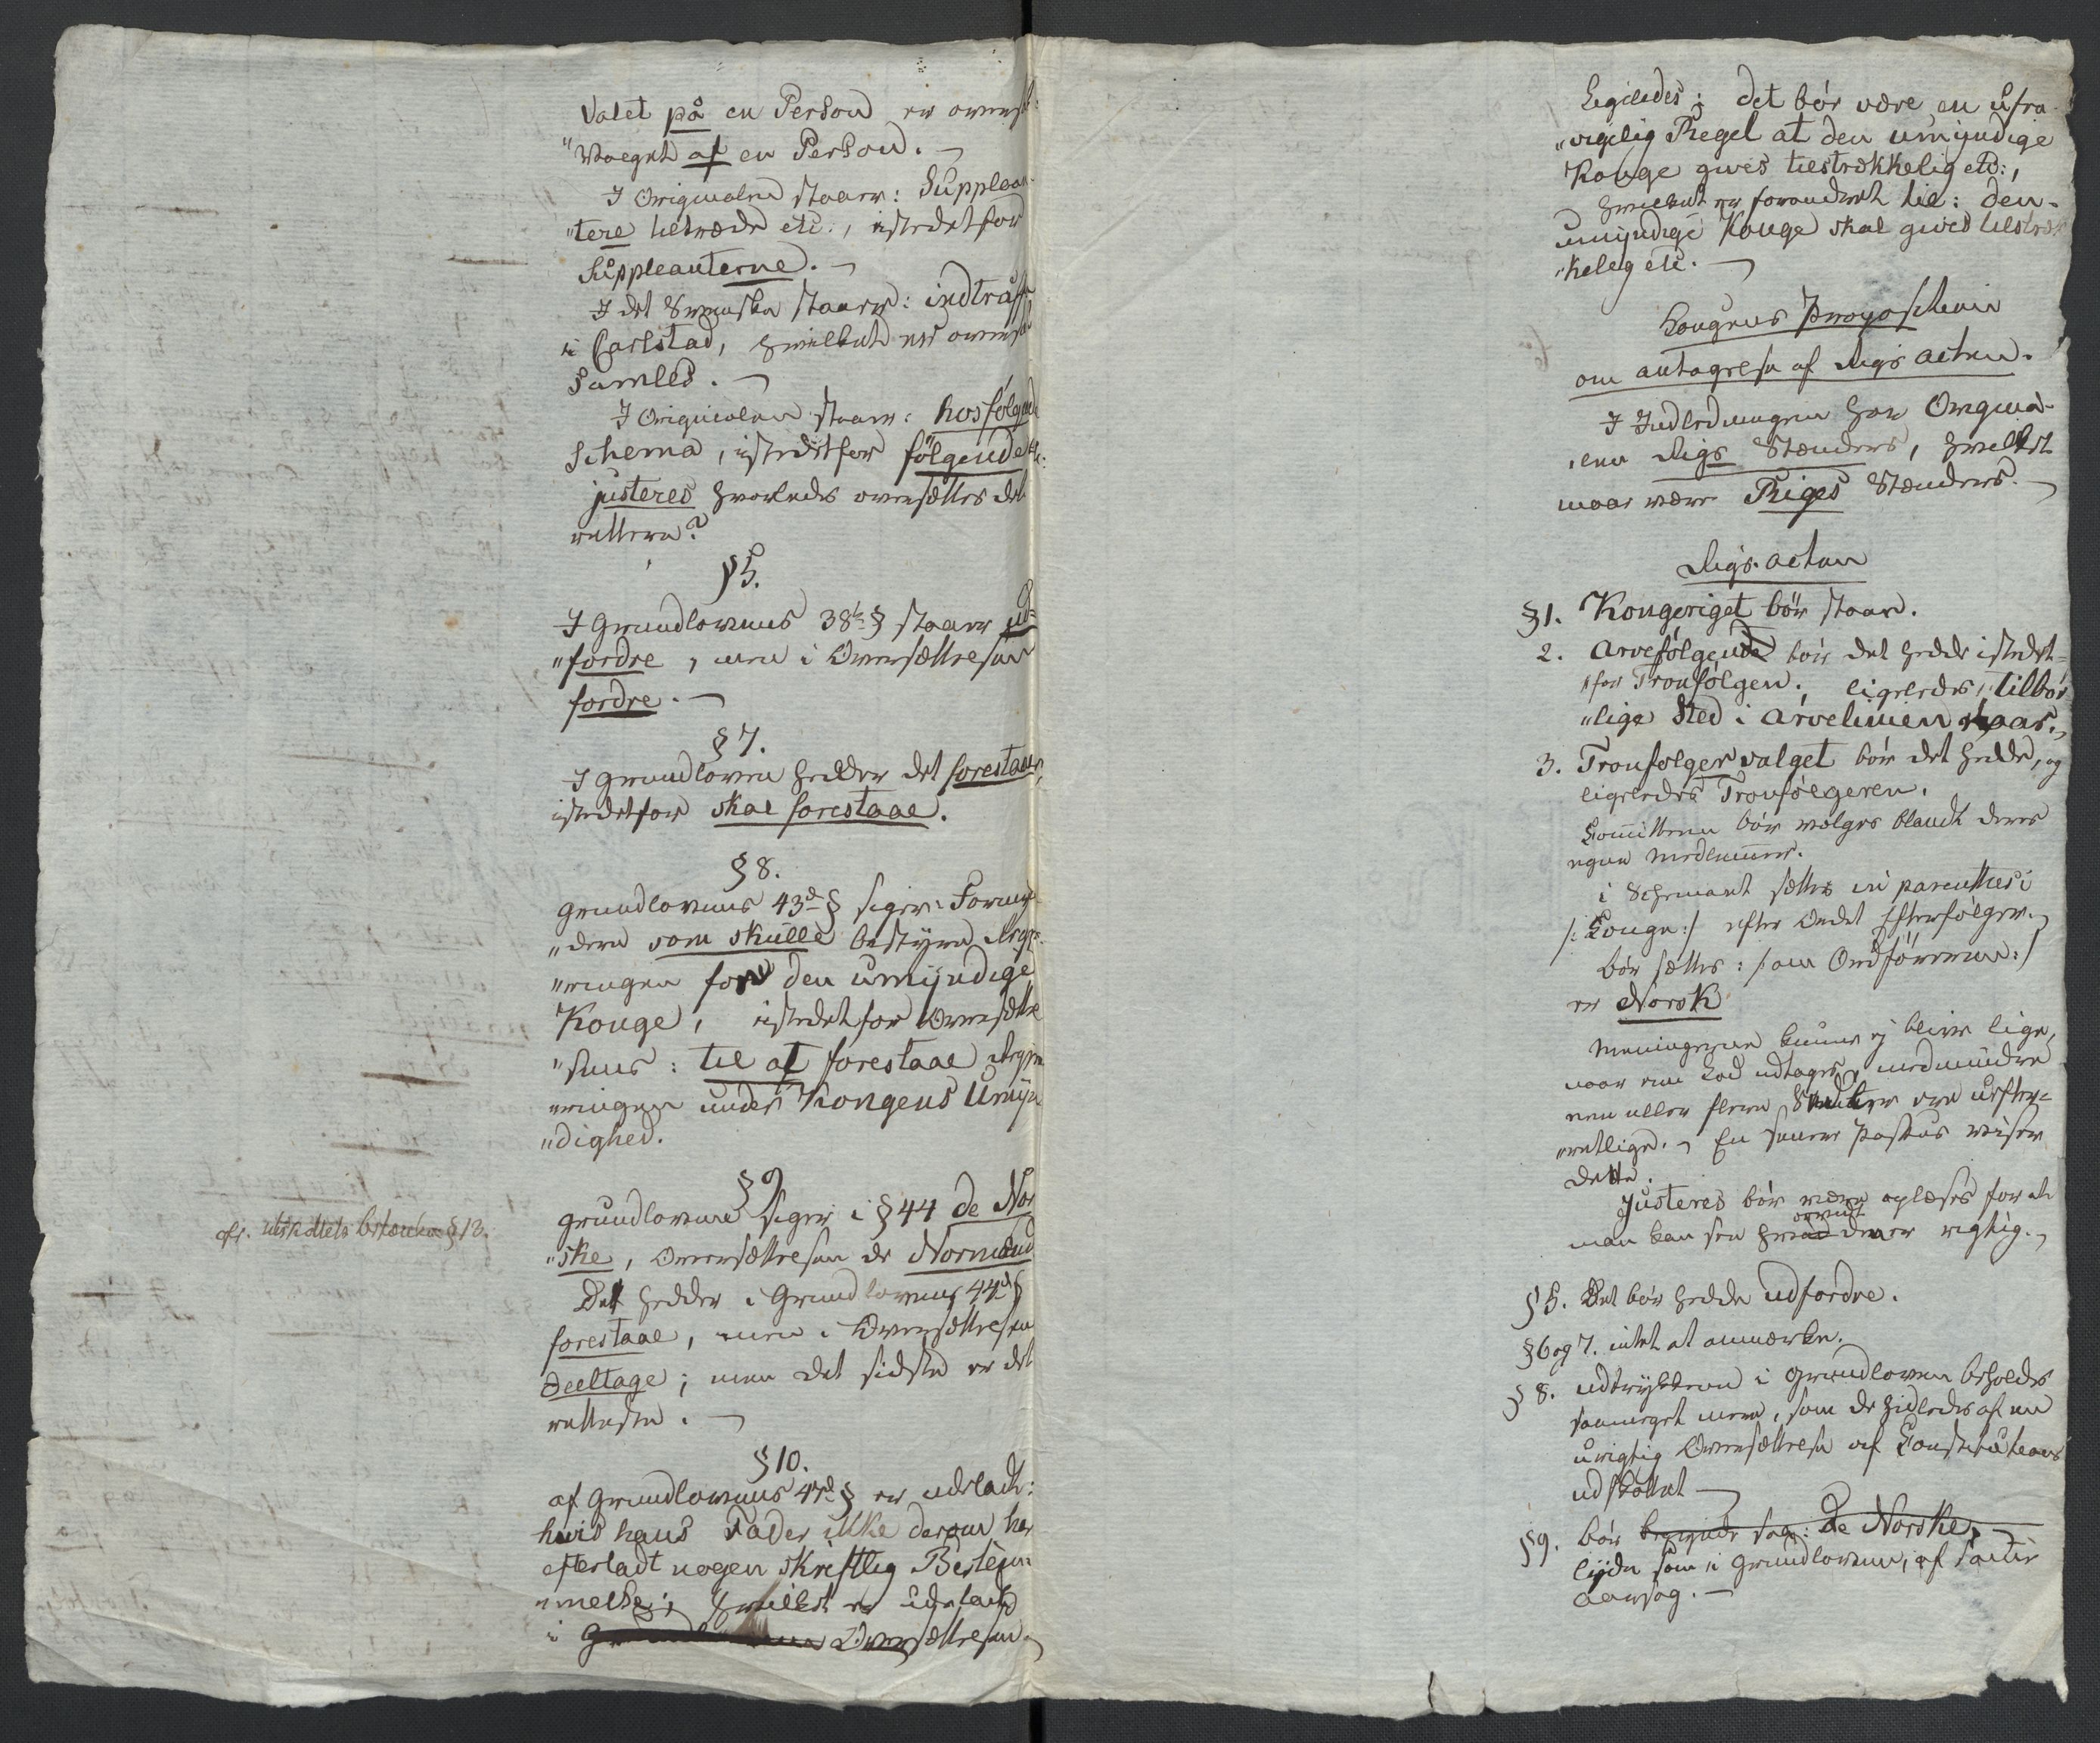 Valet på en Person er overs
"Waeget af en Person. –
I Originalen staaer: Supplean
"tere tiltræde etc:, istedetfor
Suppleanterne. –
I det Svenska staaer: indträff
i Carlstad, hvilket er overs
samles. –
I Originalen staaer: hosfølgende
Schema, istedetfor følgende
justeres hvorledes oversættes det
rettere?
§5.
I Grundlovens 38te § staaer ud=
"fordre, men i Oversættelsen
fordre. –
§7.
I Grundloven hedder det forestaaer,
istedetfor skal forestaae.
§8.
Grundlovens 43de § siger: Formyn
"dere som skulle bestyre Regje
"ringen for den umyndige
Konge, istedetfor Oversættel
"sens: til at forestaae Regje
"ringen under Kongens Umyn
"dighed.
§9
Grundloven siger i §44 de Nor
"ske, Oversættelsen de Normænd
Det hedder i Grundlovens 44de §
forestaae, men i Oversættelsen
deeltage; men det sidste er det
retteste. –
cfr. utskottets betænk §13.
§10.
af Grundlovens 47de § er udeladt:
hvis hans Fader ikke derom har
efterladt nogen skriftlig Bestem
"melse; hvilket er udeladt
i Oversættelsen
Ligeledes: det bør være en ufra-
"vigelig Regel at den umyndige
Konge gives tilstrækkelig etc:,
hvilket er forandret til: den
umyndige Konge skal gives tilstræk
"kelig etc. –
Kongens Proposition
om antagelse af Rigs acten.
I Indledningen har Origina-
len Rigs Stænders, hvilket
maa være Riges Stænders. –
Rigs-acten
§1. Kongeriget bör staae.
2. Arvefølgende bör det hedde istedet=
"for Tronfølgen. ligeledes, tilbør
"lige Sted i Arvelinien
3. Tronfølgervalget bör det hedde, og
ligeledes Tronfølgeren.
Committeen bör vælges blandt deres
egne Medlemmer.
i Schemaet sættes in parenthesi
/: Konge:/ efter Ordet Efterfølger.
bör sættes: /: om Ordföreren:/
er Norsk
Meningerne kunne ej blive lige,
naar een Lod udtages, medmindre
een eller flere Sedler ere uefter=
"retlige. En senere passus viser
dette.
Justeres bör være oplæses for at
man kan see hvad
rigtig.
§5. Det bör hedde udfordre.
§6 og 7. intet at anmærke.
§8. udtrykkene i Grundloven beholdes
saameget mere, som de hidledes af en
urigtig Oversættelse af Constitutions
udskottet –
§9. bör de Norske,
lyde som i Grundloven, af samme
aarsag. –